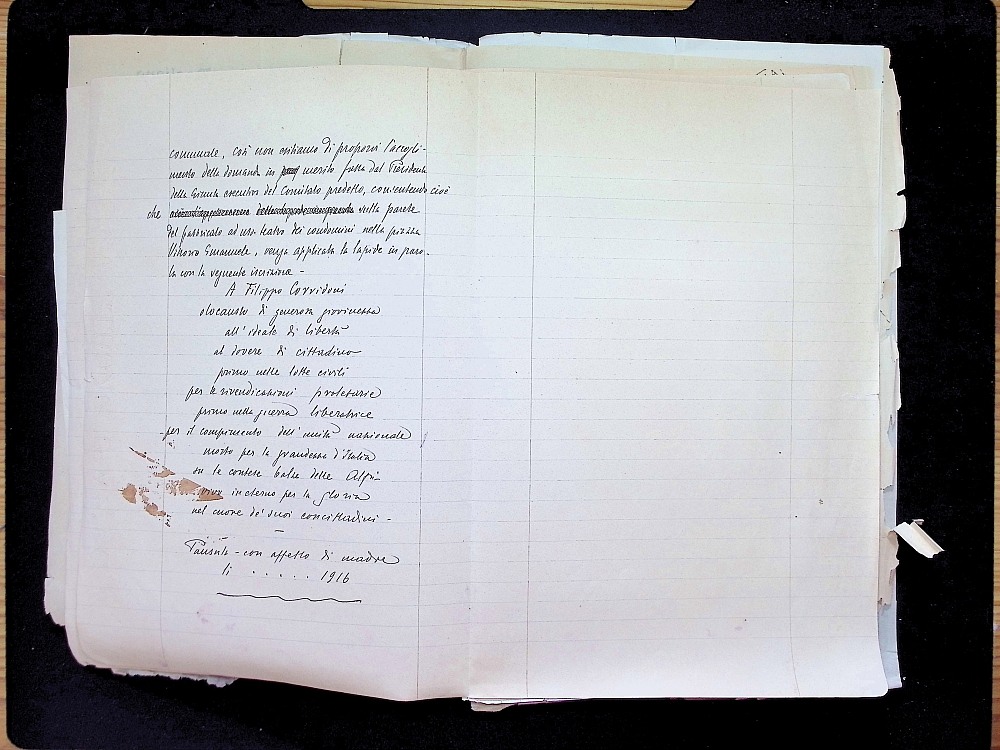 comunale, così non esitiamo di proporvi l'accogli-
mento della domanda in merito fatta dal Presidente
della Giunta esecutiva del Comitato predetto, consentendo cioè
che sulla parete
del fabbricato ad uso teatro dei condomini nella piazza
Vittorio Emanuele, venga applicata la lapide in paro-
la con la seguente iscrizione -
A Filippo Corridoni
olocausto di generosa giovinezza
all'ideale di libertà
al dovere di cittadino
primo nelle lotte civili
per le rivendicazioni proletarie
primo nella guerra liberatrice
per il compimento dell'unità nazionale
morto per la grandezza d'Italia
su le contese balze delle Alpi
vivo in eterno per la gloria
nel cuore de' suoi concittadini -
Pausula - con affetto di madre
lì . . . . . 1916